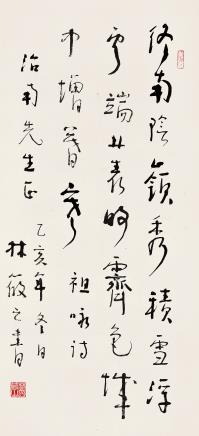 終南陰嶺秀積雪浮
雲端林表明霽色城
中增暮寒 祖咏诗
治南先生正
乙亥年冬日
林筱之書